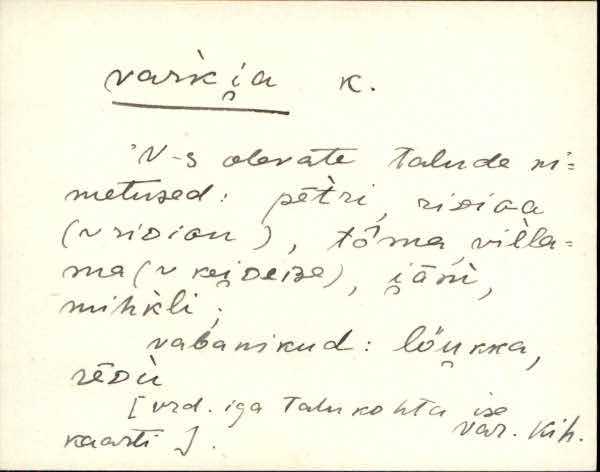 varki̯a k.
V-s olevate talude ni=
metused: pētri, ridiaa
(v ridiau), tõ̀ma, villa=
ma (v kei̯deze), i̯ānì,
mihkli;
vabanikud: löu̯kka,
rēdù
[vrd. iga talu kohta ise
kaarti]. var. Kih.